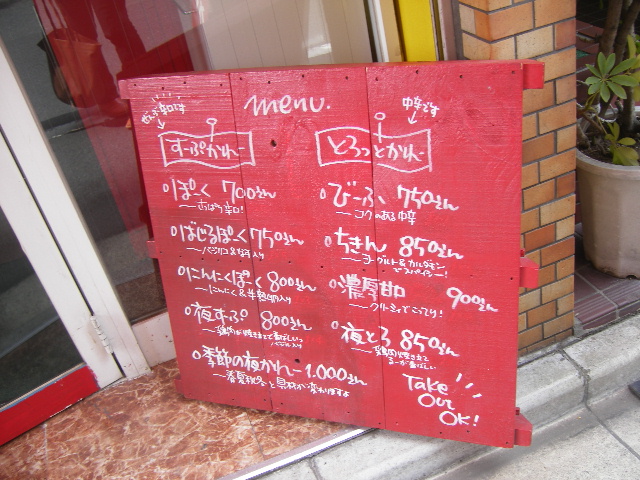 menu.
ぜんぶ辛口です
すーぷかれー
ぽーく 700えん
さっぱり辛口!
ばじるぽーく 750えん
にんにくぽーく 800えん
夜すーぷ 800えん
季節の夜かれー 1.000えん
春夏秋冬と具材が変わりますよ
中辛です
とろっとかれー
びーふ 750えん
コクのある中辛
ちきん 850えん
ヨーグルト&カルダモン
でスパイシー!
濃厚甘口 900えん
クリーミィでこってり!
夜とろ 850えん
Take
Out
OK!